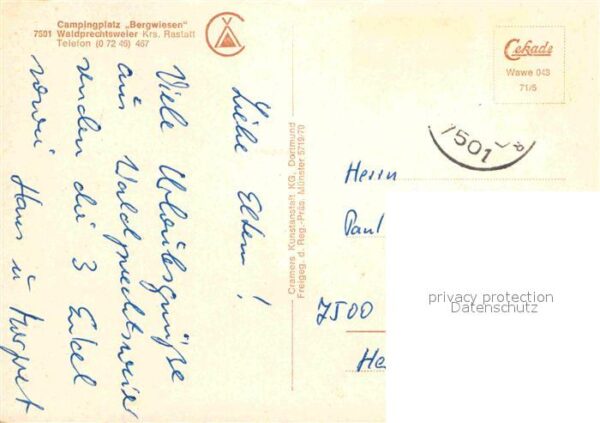 Campingplatz „Bergwiesen"
7501 Waldprechtsweier Krs. Rastatt
Telefon (0 72 45) 467
Liebe Eltern!
Viele Urlaubsgrüße
aus Waldprechtsweier
senden die 3 Enkel
sowie
Hans u Margret
Cramers Kunstanstalt KG, Dortmund
Freigeg. d. Reg.-Präs. Münster 5719/70
Cekade
Wawe 043
71/5
7501
Herrn
Paul
7500
He
privacy protection
Datenschutz